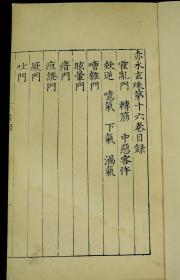 赤水玄珠第十六卷目錄
霍亂門 轉筋 中惡客忤
欬逆 噫氣 下氣 瀉氣
嘈雜門
眩暈門
瘖門
痙證門
厥門
吐門